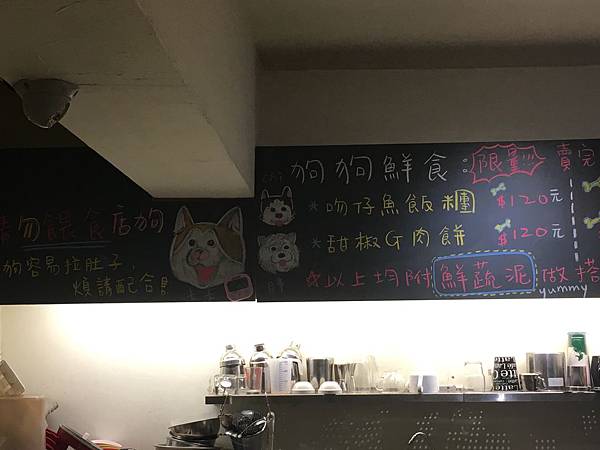 請勿餵食店狗
狗容易拉肚子,
煩請配合!!
狗狗鮮食:限量!!! 賣完
*吻仔魚飯糰 $120元
*甜椒G肉餅 $120元
☆以上均附鮮蔬泥做搭
yummy
Latte